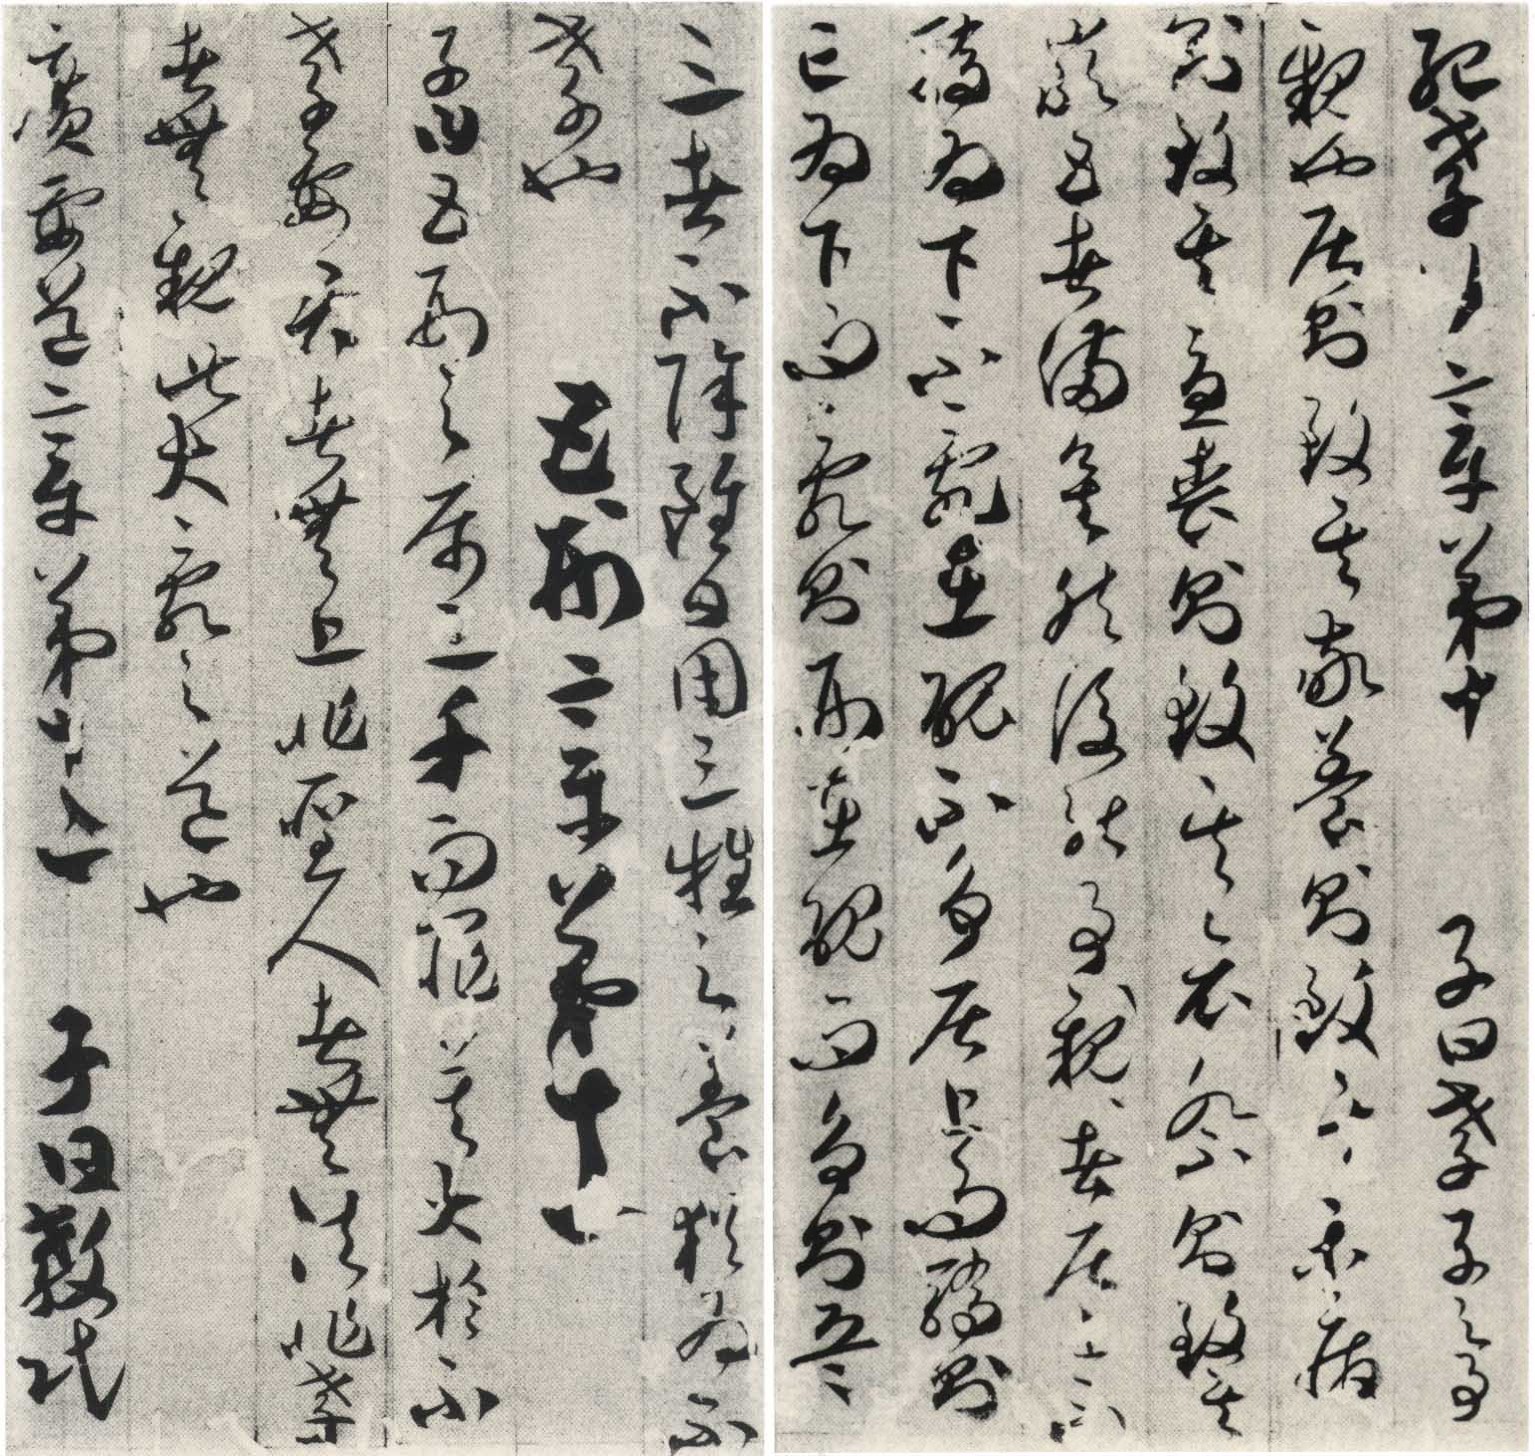 紀孝行章第十 子曰孝子之事
親也居則致其敬養則致其樂病
則致其憂喪則致其哀祭則致其
嚴五者備矣然後能事親者居上不
驕為下不亂在醜不爭居上而驕則
亡為下而亂則刑在醜而爭則兵
三者不除雖日用三牲之養猶為不
孝也 五刑章第十一
子曰五刑之屬三千而罪莫大於不
孝要君者無上非聖人者無法非孝
者無親此大亂之道也
廣要道章第十二 子曰教民